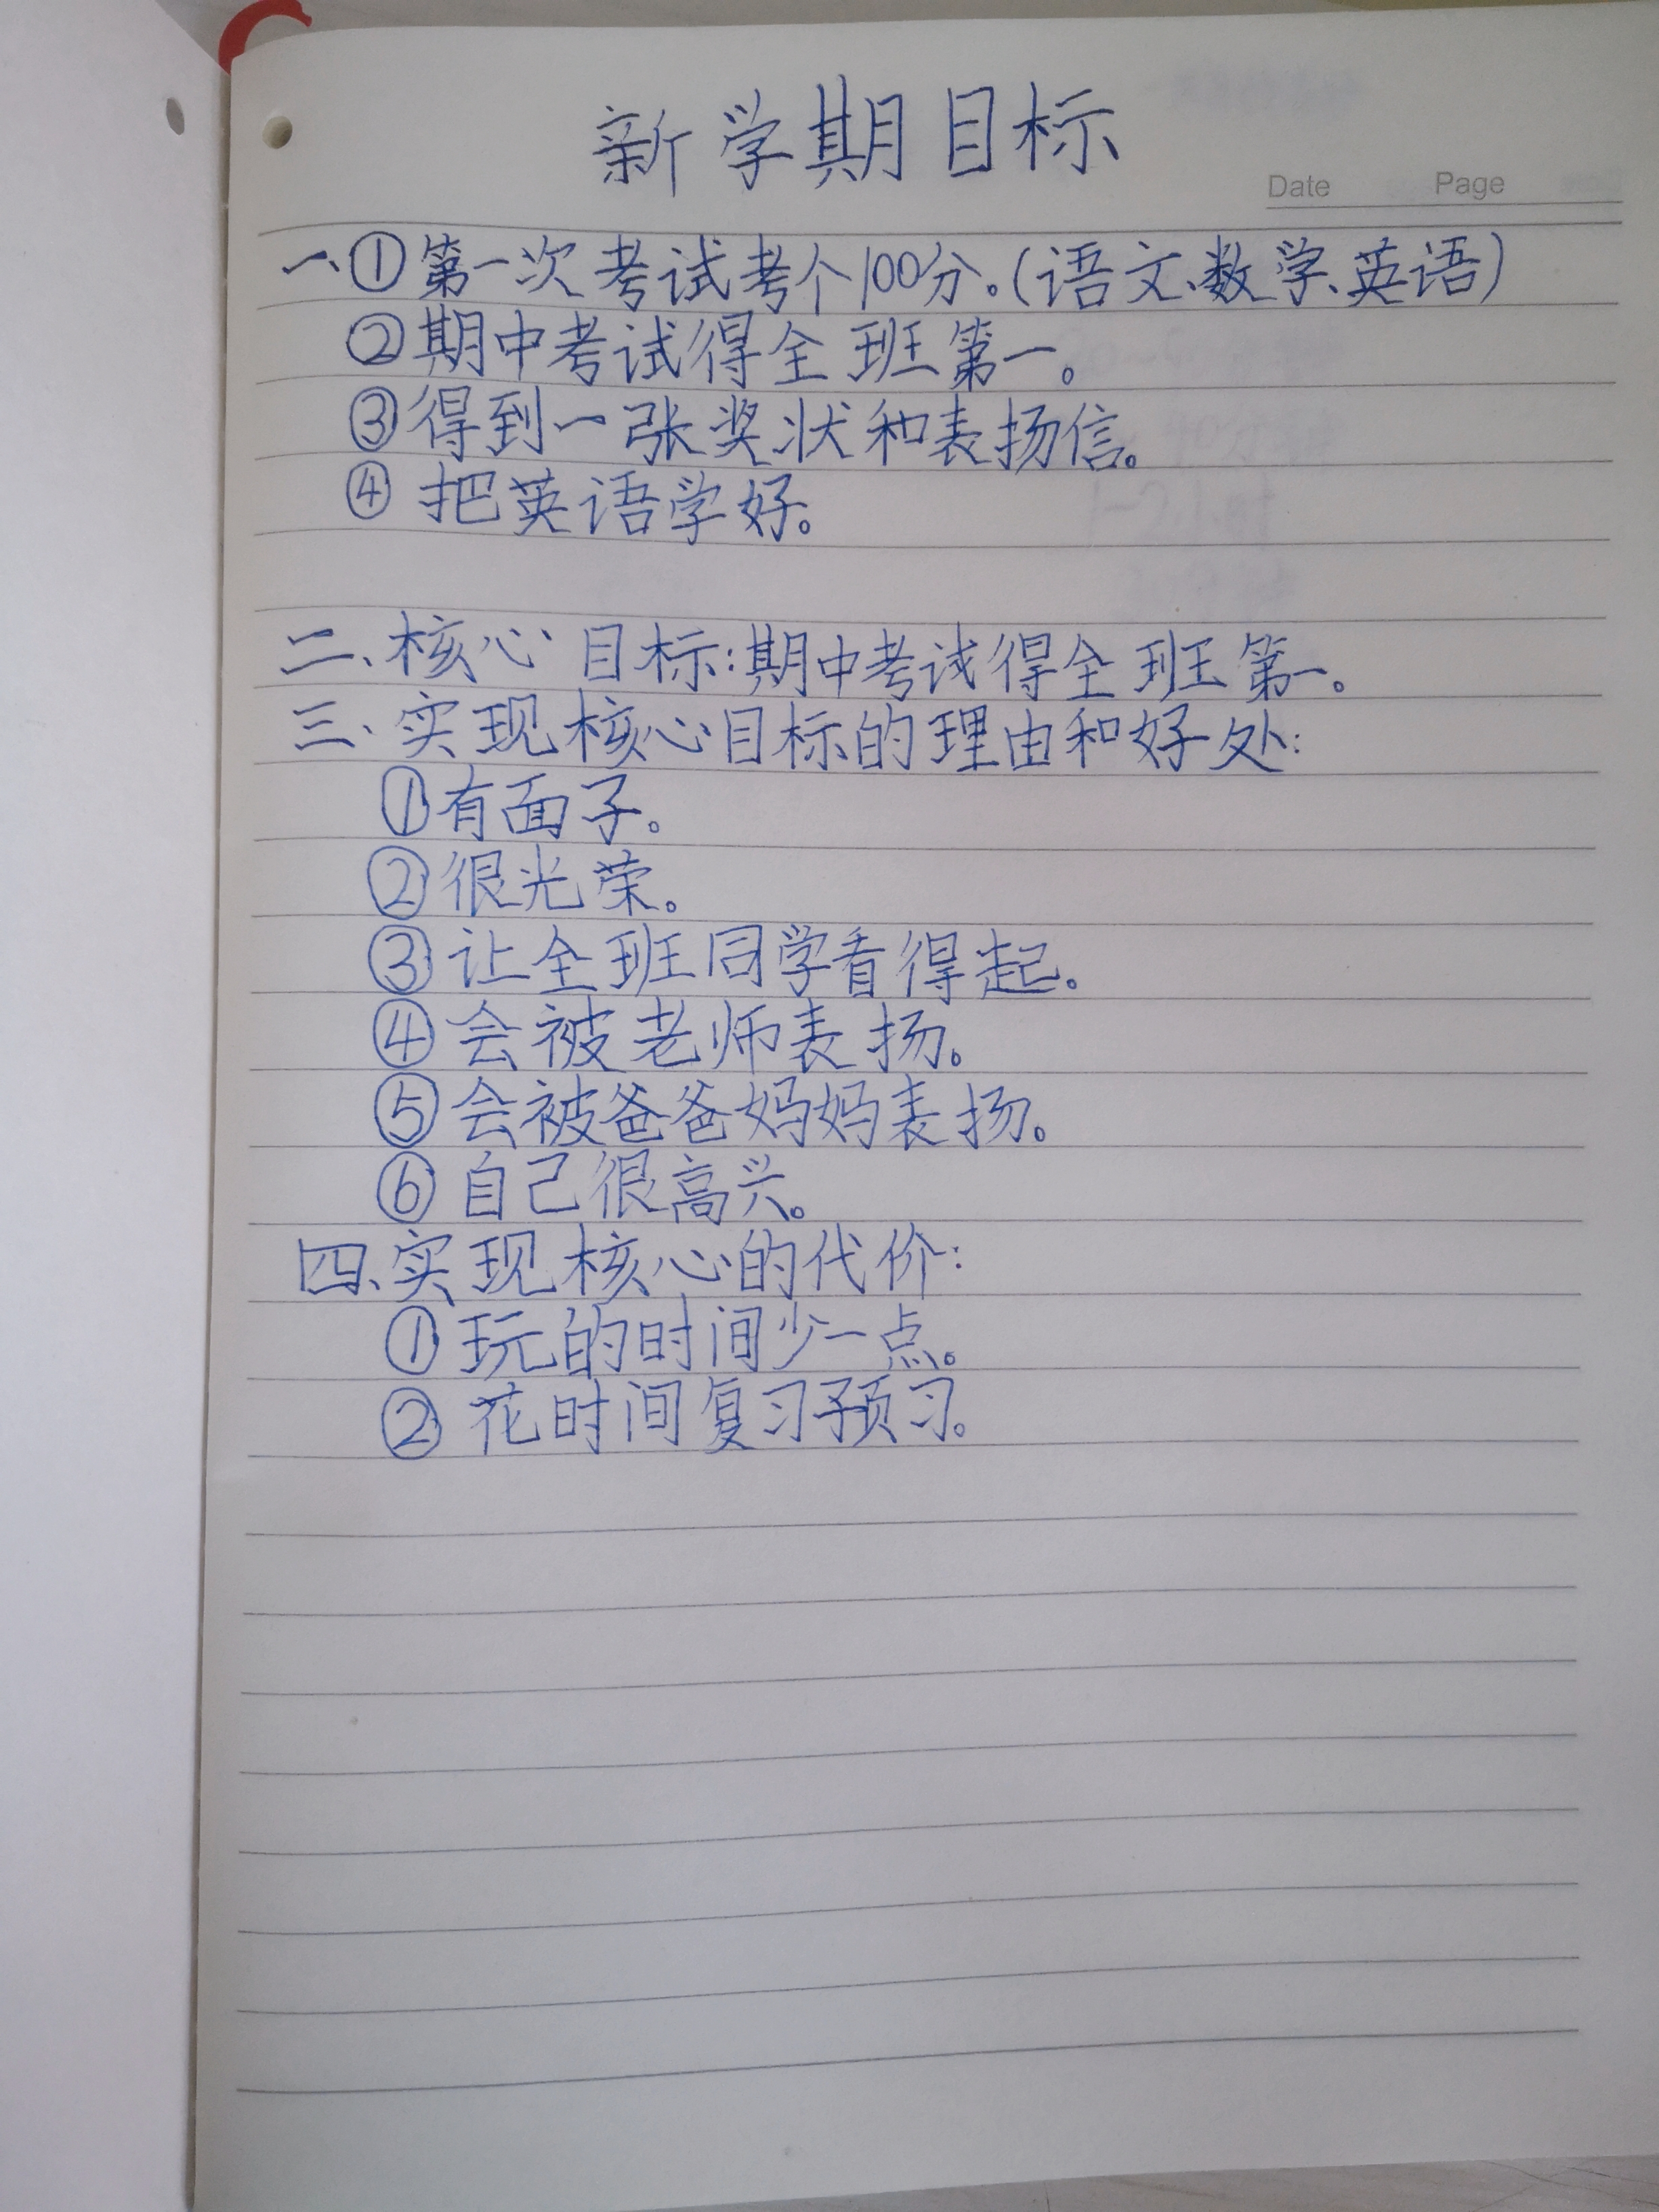 新学期目标
Date Page
一、①第一次考试考个100分。(语文、数学、英语)
②期中考试得全班第一。
③得到一张奖状和表扬信。
④把英语学好。
二、核心目标:期中考试得全班第一。
三、实现核心目标的理由和好处:
①有面子。
②很光荣。
③让全班同学看得起。
④会被老师表扬。
⑤会被爸爸妈妈表扬。
⑥自己很高兴。
四、实现核心的代价:
①玩的时间少一点。
②花时间复习预习。